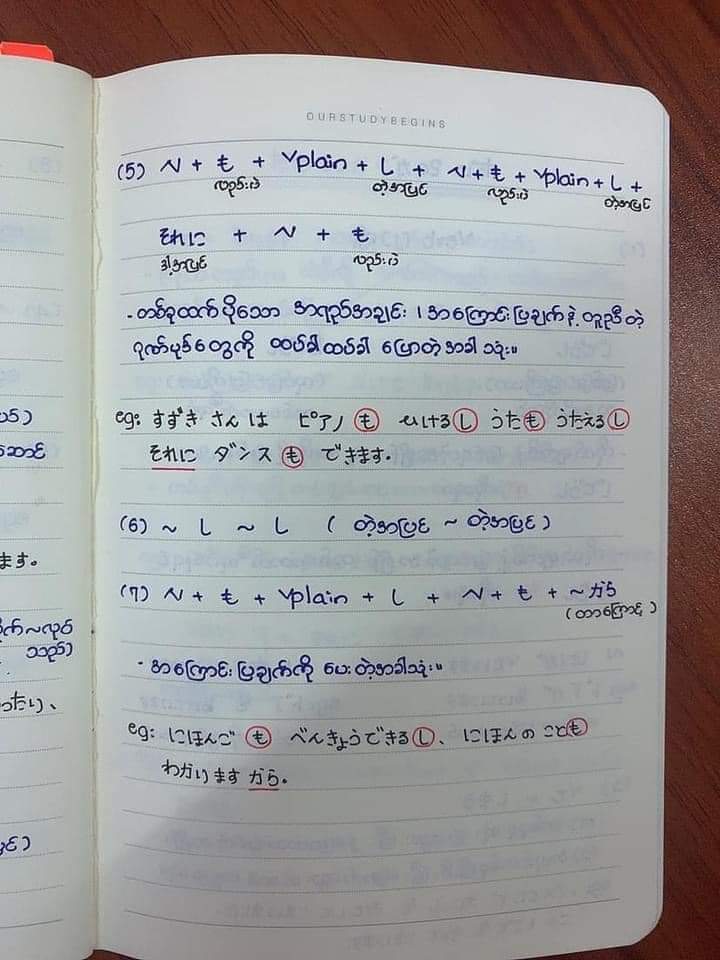 OURSTUDYBEGINS
(5) N + も + Vplain + し + N + も + Vplain + し +
လည်းပဲ တဲ့အပြင် လည်းပဲ တဲ့အပြင်
それに + N + も
ဒါ့အပြင် လည်းပဲ
- တစ်ခုထက်ပိုသော အရည်အချင်း ၊ အကြောင်းပြချက်နဲ့ တူညီတဲ့
ဂုဏ်ပုဒ်တွေကို ထပ်ခါထပ်ခါ ပြောတဲ့အခါသုံး။
eg: すずき さんは ピアノ も ひける し うた も うたえる し
それに ダンス も できます.
(6) ~ し ~ し ( တဲ့အပြင် ~ တဲ့အပြင် )
(7) N + も + Vplain + し + N + も + ~から
(တာကြောင့်)
- အကြောင်းပြချက်ကို ပေးတဲ့အခါသုံး။
eg: にほんご も べんきょうできる し、にほんの こと も
わかります から。
ます。
သည်)
ったり、